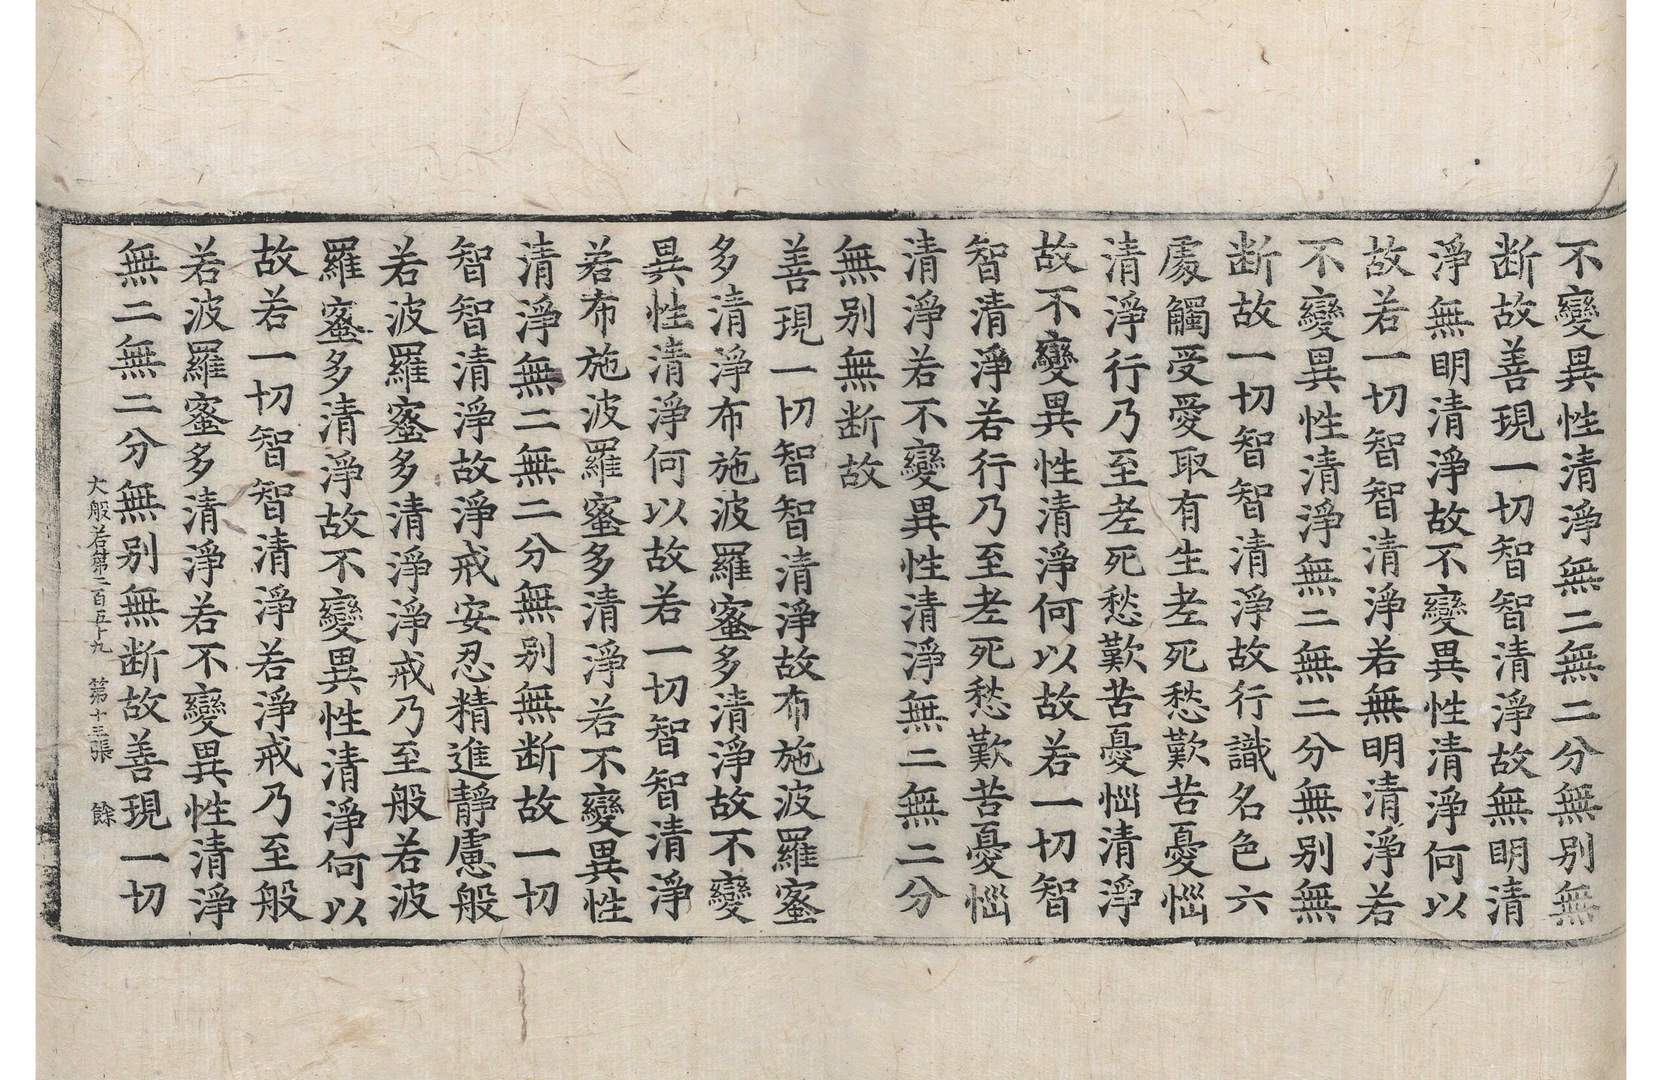 不變異性清淨無二無二分無別無
断故善現一切智智清淨故無明清
淨無明清淨故不變異性清淨何以
故若一切智智清淨若無明清淨若
不變異性清淨無二無二分無別無
断故一切智智清淨故行識名色六
處觸受愛取有生老死愁歎苦憂惱
清淨行乃至老死愁歎苦憂惱清淨
故不變異性清淨何以故若一切智
智清淨若行乃至老死愁歎苦憂惱
清淨若不變異性清淨無二無二分
無別無断故
善現一切智智清淨故布施波羅蜜
多清淨布施波羅蜜多清淨故不變
異性清淨何以故若一切智智清淨
若布施波羅蜜多清淨若不變異性
清淨無二無二分無別無断故一切
智智清淨故淨戒安忍精進靜慮般
若波羅蜜多清淨淨戒乃至般若波
羅蜜多清淨故不變異性清淨何以
故若一切智智清淨若淨戒乃至般
若波羅蜜多清淨若不變異性清淨
無二無二分無別無断故善現一切
大般若第二百五十九 第十三張 餘